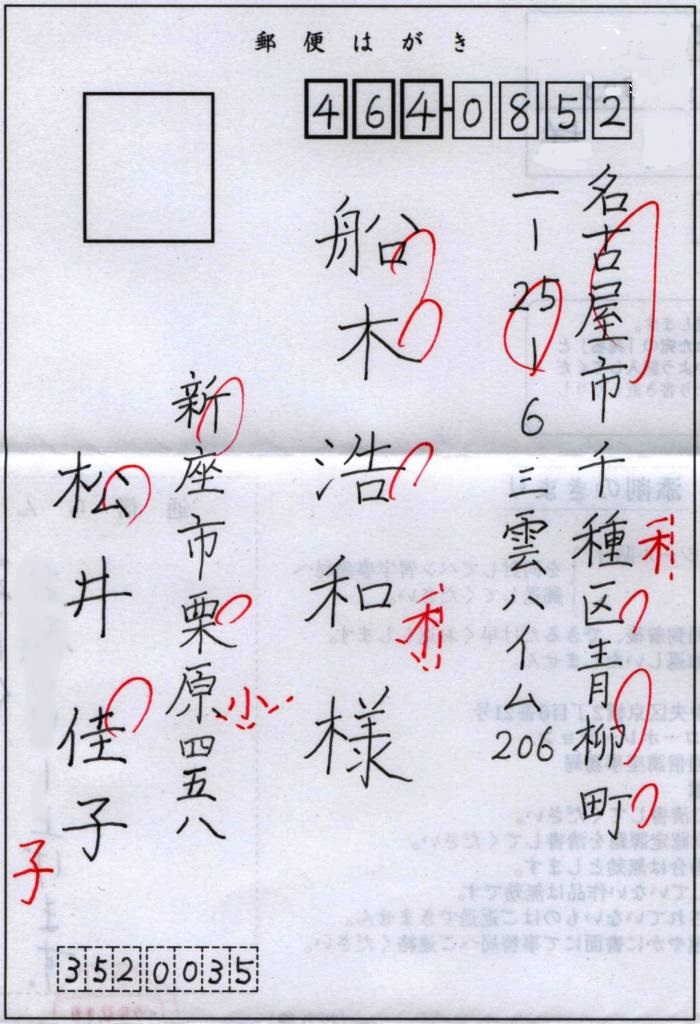 郵便はがき
464-0852
名古屋市千種区青柳町
一ー25ー6三雲ハイム206
船木浩和様
新座市栗原四五八
松井佳子
3520035
禾
禾
小
子